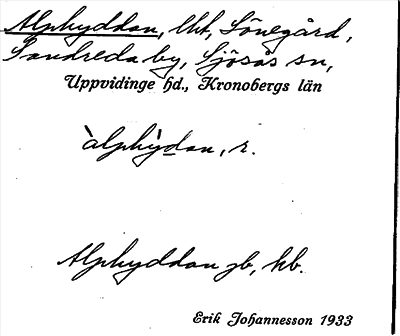 Alphyddan, lht, Lönegård,
Sandreda by, Sjösås sn,
Uppvidinge hd., Kronobergs län
àlphỳdan, r.
Alphyddan gb, hb.
Erik Johannesson 1933